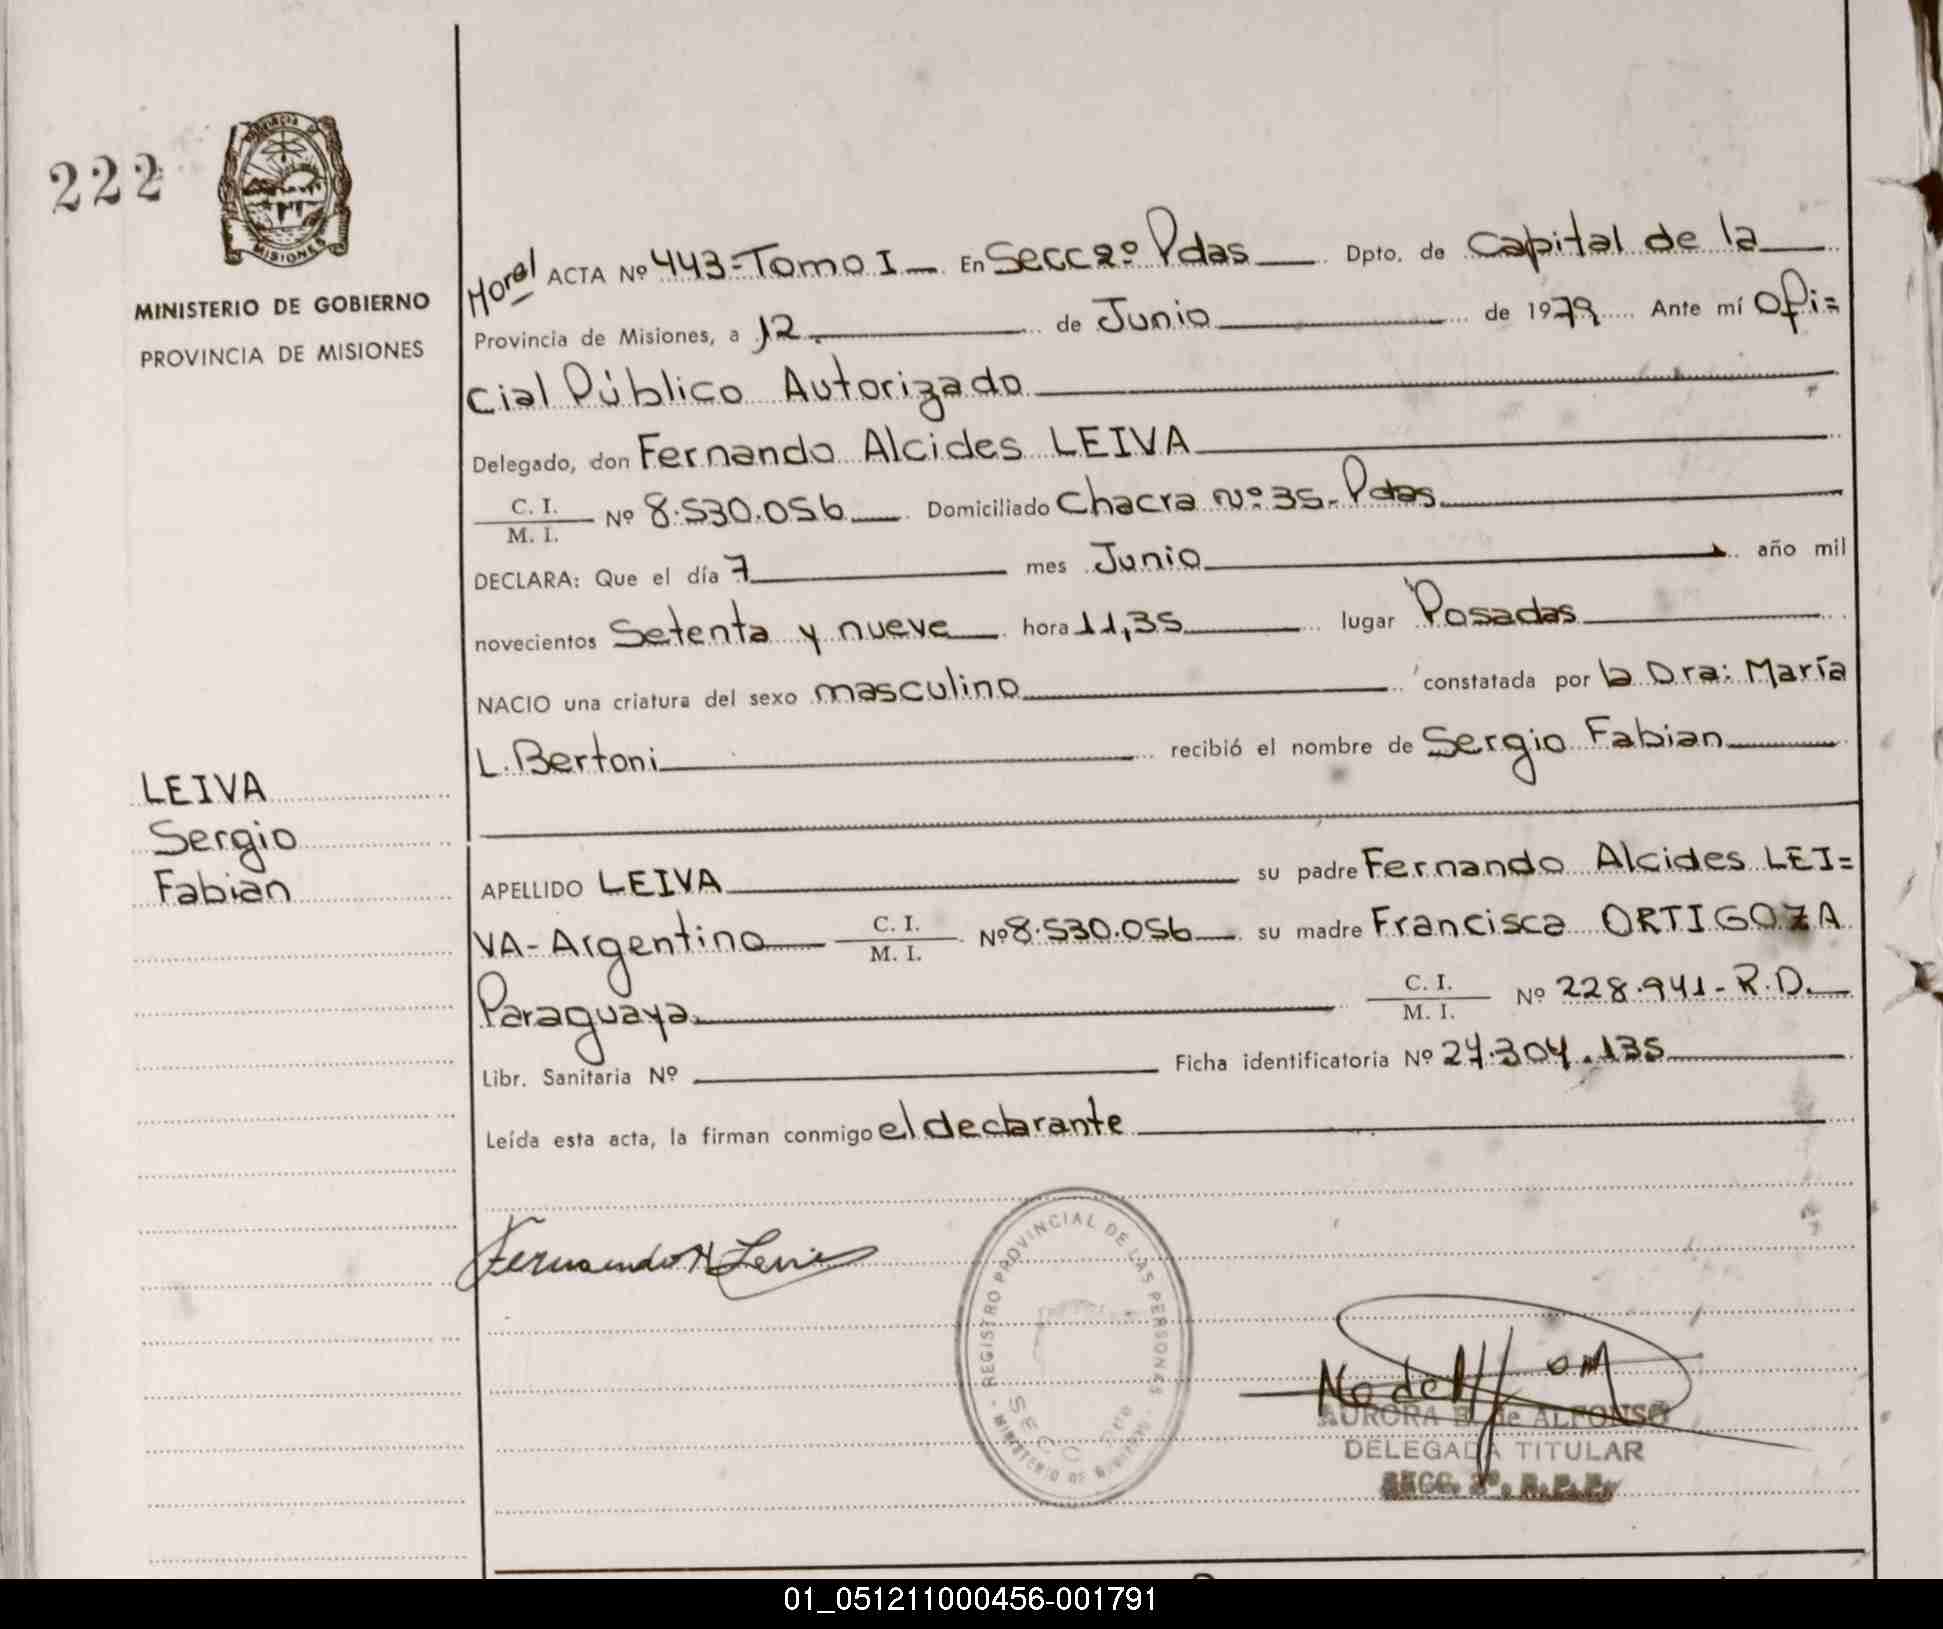 222
PROVINCIA DE
MISIONES
MINISTERIO DE GOBIERNO
PROVINCIA DE MISIONES
LEIVA
Sergio
Fabian
ACTA Nº 443=Tomo I En Secc 2º Pdas Dpto. de Capital de la
Provincia de Misiones, a 12 de Junio de 1979 Ante mí Ofi=
cial Público Autorizado
Delegado, don Fernando Alcides LEIVA
C. I.
M. I. Nº 8.530.056 Domiciliado Chacra nº: 35- Pdas
DECLARA: Que el día 7 mes Junio año mil
novecientos Setenta y nueve hora 11,35 lugar Posadas
NACIO una criatura del sexo masculino constatada por la Dra: María
L. Bertoni recibió el nombre de Sergio Fabian
APELLIDO LEIVA su padre Fernando Alcides LEI=
VA- Argentino C. I.
M. I. Nº 8.530.056 su madre Francisca ORTIGOZA
Paraguaya C. I.
M. I. Nº 228.941- R.D.
Libr. Sanitaria Nº Ficha identificatoria Nº 27.304.135
Leída esta acta, la firman conmigo el declarante
Fernando A Leiva
REGISTRO PROVINCIAL DE LAS PERSONAS
MINISTERIO DE GOBIERNO
SECC
AURORA B. de ALFONSO
DELEGADA TITULAR
SECC. 2º. R.P.P.
01_051211000456-001791